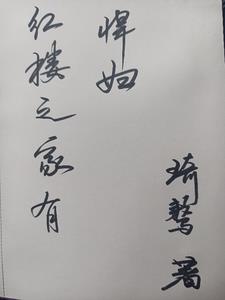 红楼之家有
悍妇
琦鹜著